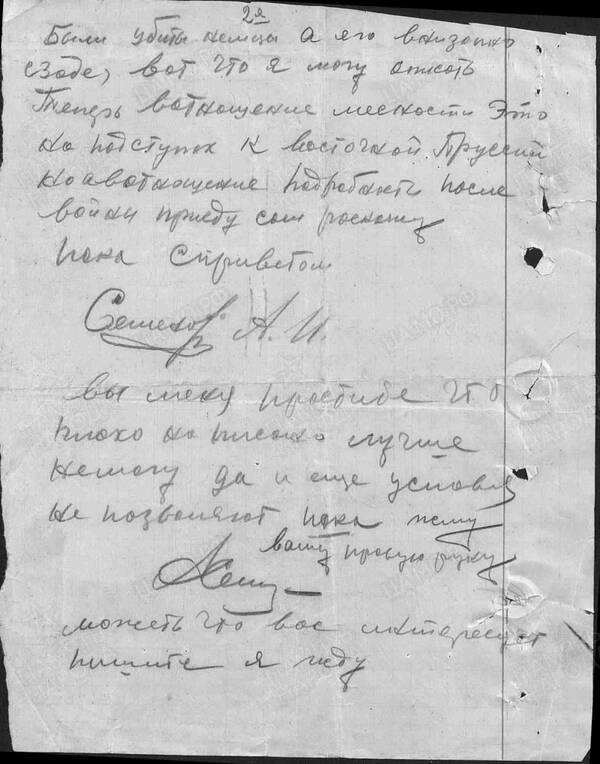 2я
Были убиты немцы а его внизапно
сзаде, вот что я могу описать
Теперь вотношение месности Это
на подступах к восточной Пруссий
но авотношение подробности после
войны приеду сам роскажу
пока Сприветом
Семенов А. И.
вы меня простите что
плохо написано лучше
немогу да и еще условия
не позволяют пока жму
вашу правую руку
можеть что вас интересует
пишите я жду
ЦАМО.РФ